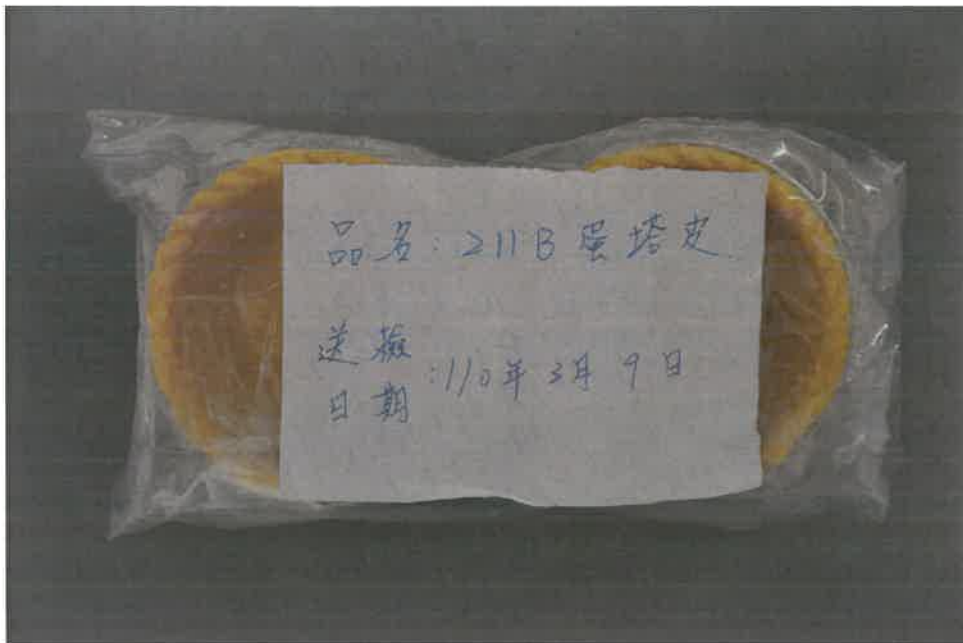 品名:211B 蛋塔皮
送檢
日期:110年3月9日